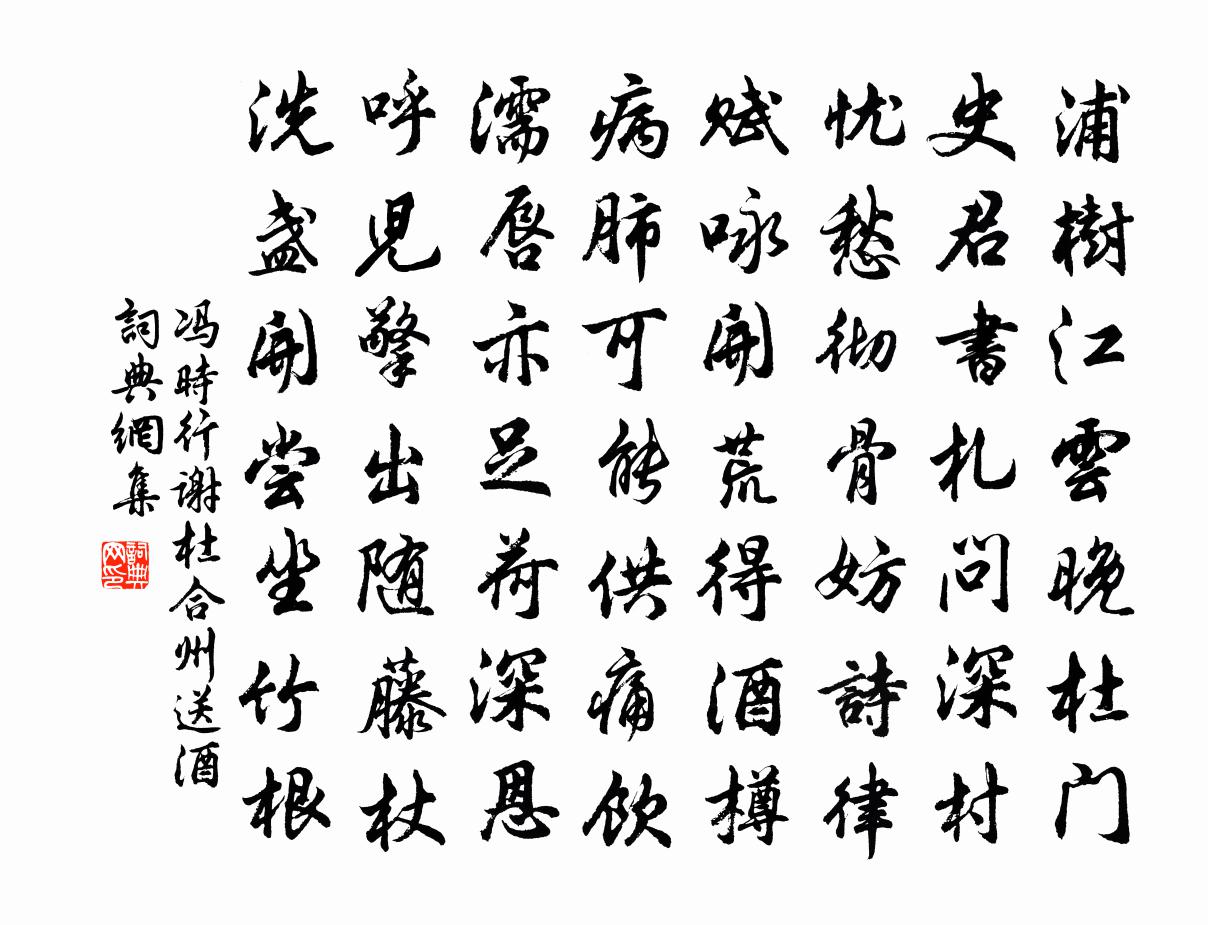 浦樹江雲晚杜门
史君書札問深村
忧愁彻骨妨詩律
赋咏開荒得酒樽
病肺可能供痛饮
濡唇亦足荷深恩
呼児擎出随藤杖
洗盏開尝坐竹根
冯時行谢杜合州送酒
詞典網集
詞典网印